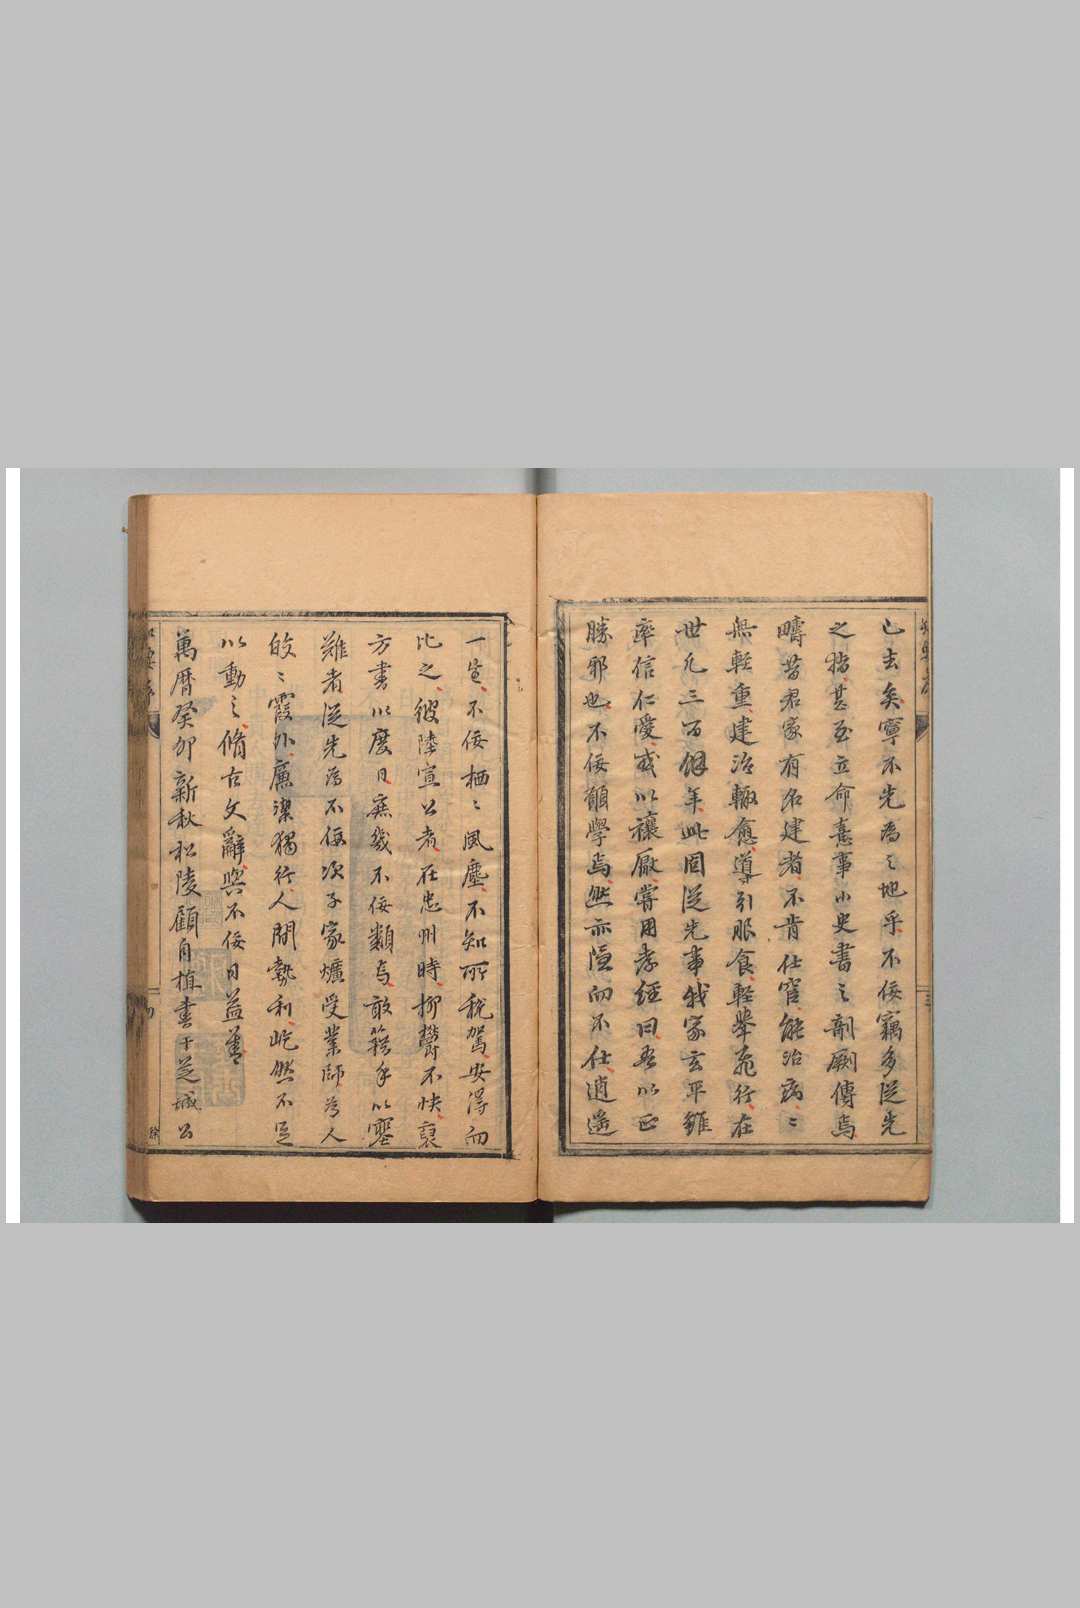 已去矣寧不先爲之地乎不佞竊多從先
之指甚至立命憙事小史書之剞劂傳焉
疇昔君家有名建者不肯仕宦能治病〻
無輕重建治輒愈導引服食輕舉飛行在
世凡三百餘年此固從先事我家玄平雖
率信仁愛或以禳厭嘗用孝經曰吾以正
勝邪也不佞願學焉然亦隱而不仕逍遥
一生不佞栖〻風塵不知所稅駕安得而
比之彼陸宣公者在忠州時抑鬱不快裒
方書以度日庶幾不佞類焉敢籍手以塞
難者從先爲不佞次子家爌受業師爲人
皎〻霞外廉潔獨行人間勢利屹然不足
以動之脩古文辭與不佞日益善
萬曆癸卯新秋松陵顧自植書于芝城公